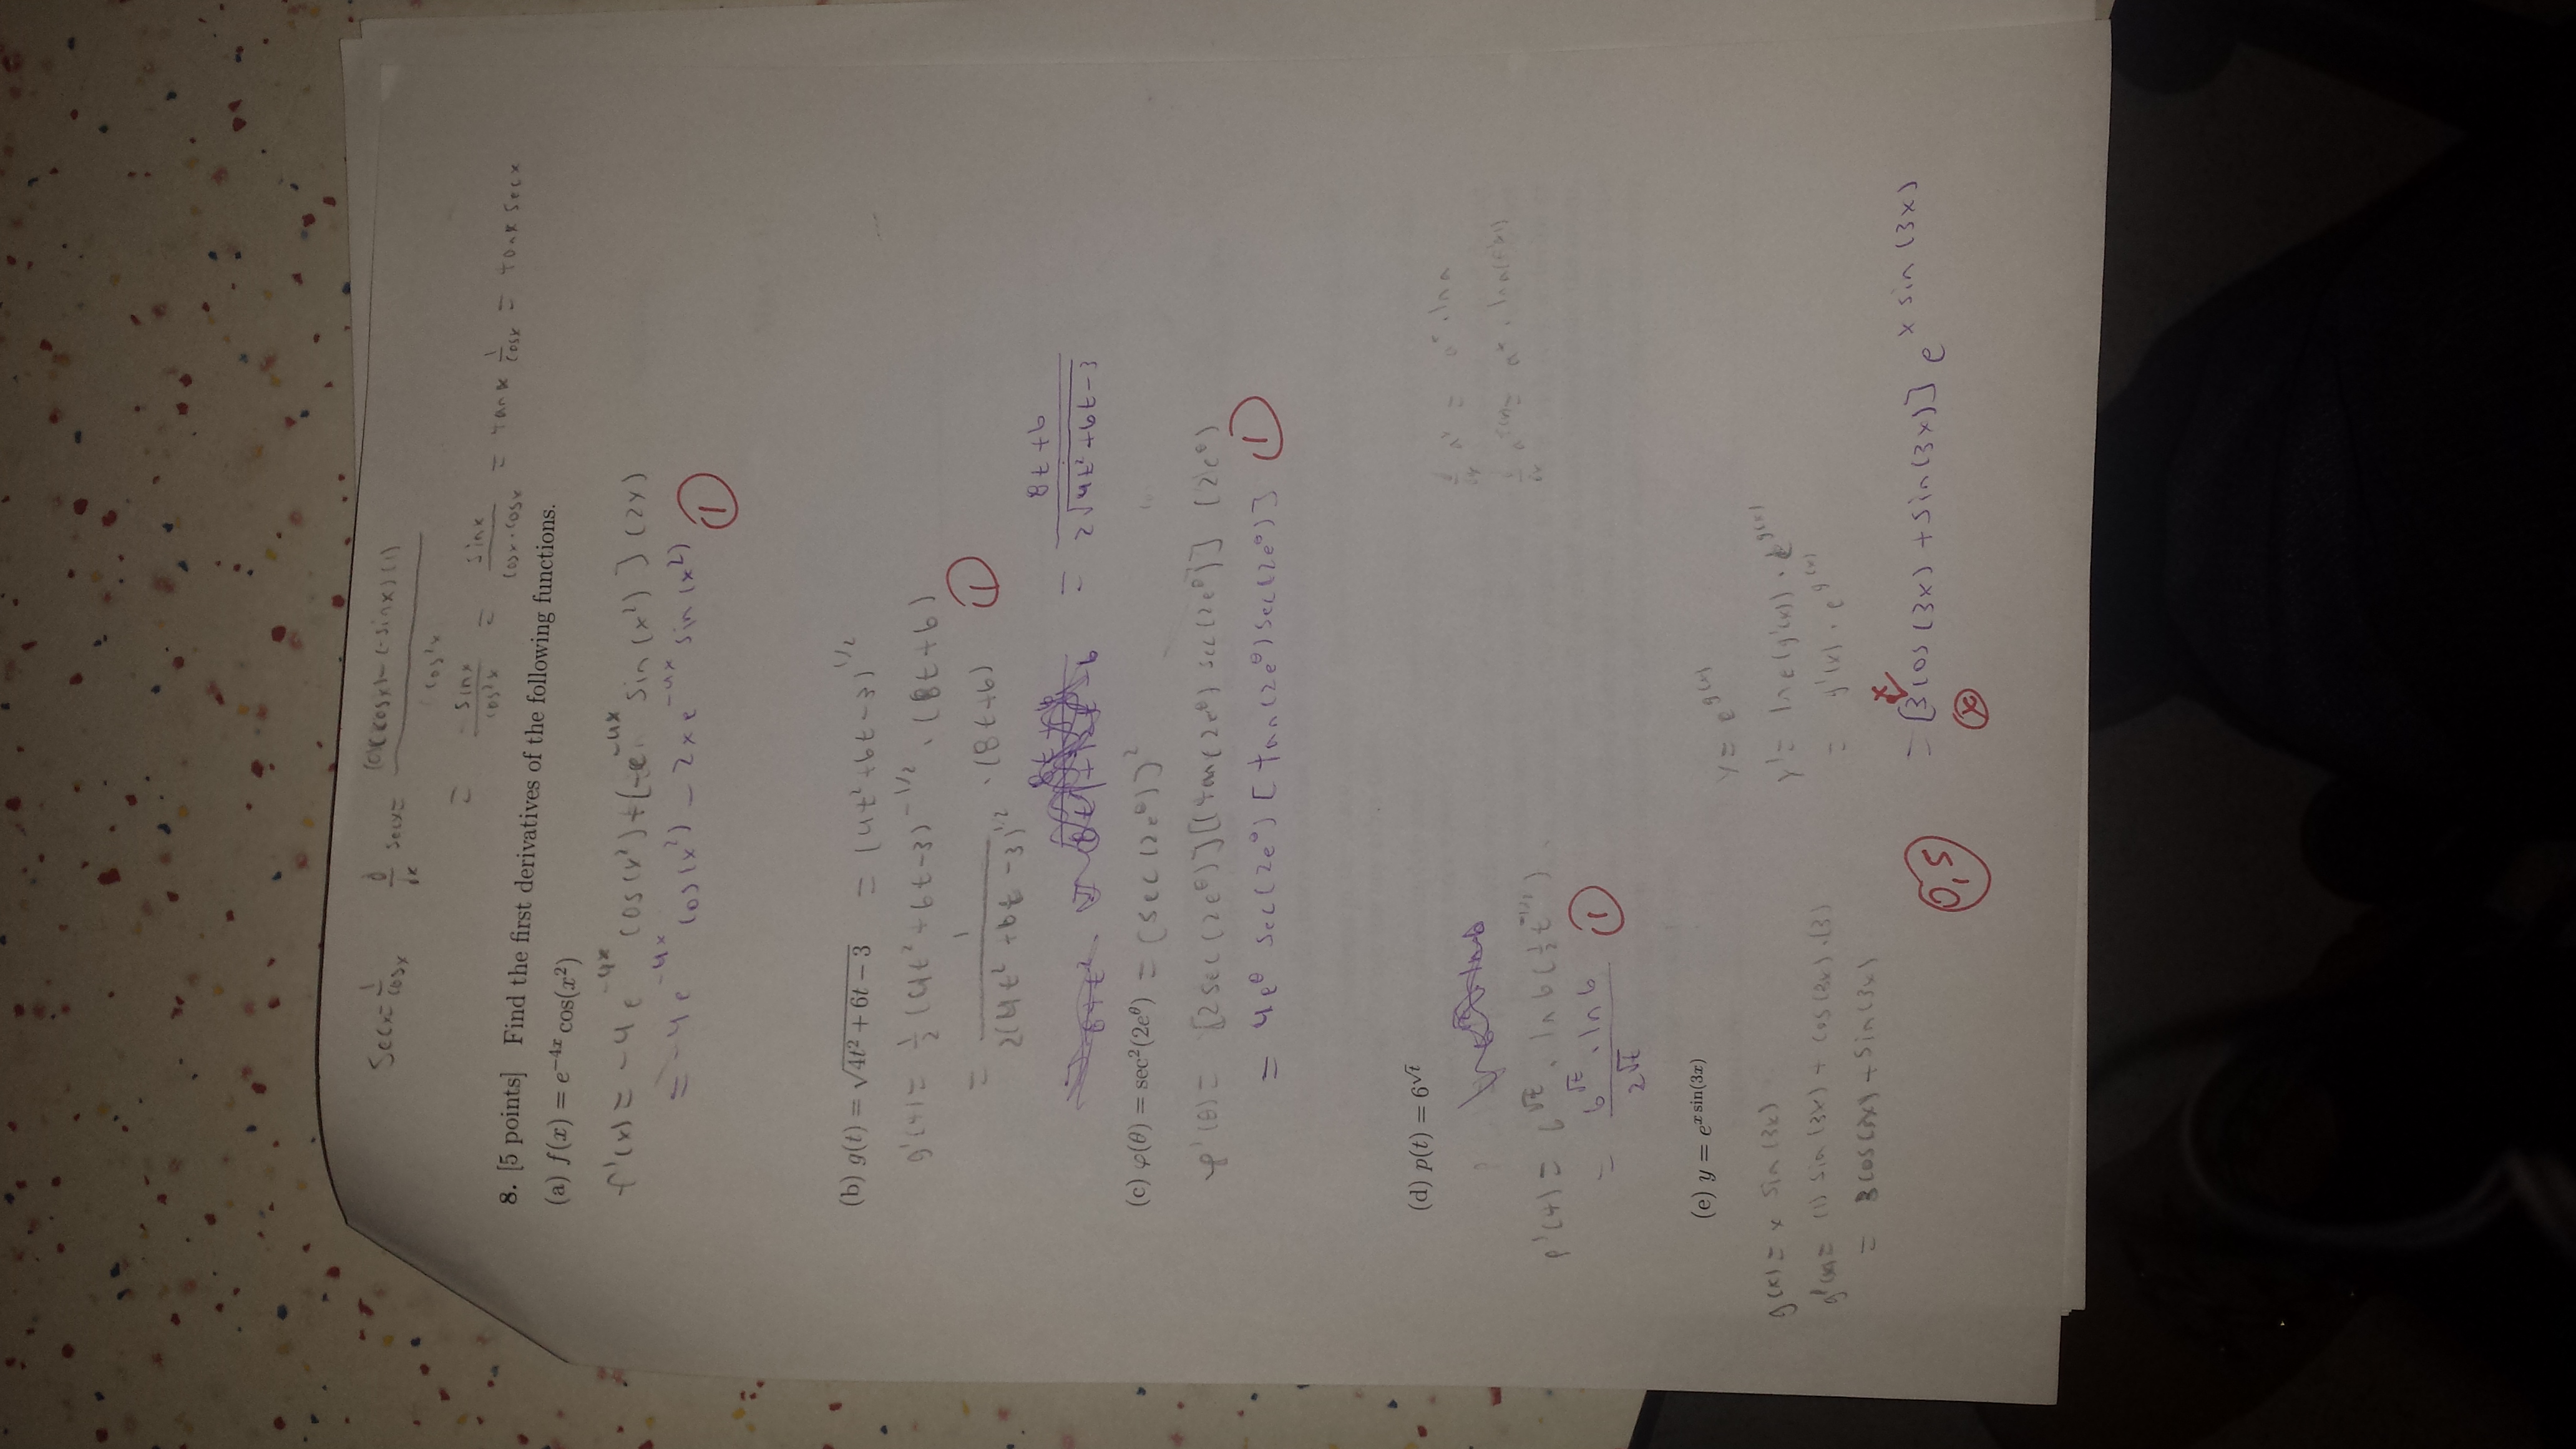 sec x = 1/cosx   d/dx secx = (0)(cosx) - (-sinx)(1) / cos²x
= sinx / cos²x = sinx / cosx·cosx = tanx 1/cosx = tanx secx
8. [5 points] Find the first derivatives of the following functions.
(a) f(x) = e^{-4x} cos(x²)
f'(x) = -4e^{-4x} cos(x²) + [-e^{-4x} sin(x²)](2x)
= -4e^{-4x} cos(x²) - 2xe^{-4x} sin(x²)
1
(b) g(t) = √(4t² + 6t - 3) = (4t² + 6t - 3)^{1/2}
g'(t) = 1/2 (4t² + 6t - 3)^{-1/2} · (8t + 6)
= 1 / 2(4t² + 6t - 3)^{1/2} · (8t + 6)
1
= 8t + 6 / 2√(4t² + 6t - 3)
(c) φ(θ) = sec²(2e^θ) = (sec(2e^θ))²
φ'(θ) = [2 sec(2e^θ)][(tan(2e^θ) sec(2e^θ)] (2e^θ)
= 4e^θ sec(2e^θ) [tan(2e^θ) sec(2e^θ)]
1
(d) p(t) = 6^{√t}
d/dx a^x = a^x · ln a
p'(t) = 6^{√t} · ln 6 (1/2 t^{-1/2})
= 6^{√t} · ln 6 / 2√t
1
(e) y = e^{x sin(3x)}
y = e^{g(x)}
g(x) = x sin(3x)
y' = ln e (g'(x)) · e^{g(x)}
g'(x) = (1) sin(3x) + cos(3x) · (3)
= g'(x) · e^{g(x)}
= 3cos(3x) + sin(3x)
= [3cos(3x) + sin(3x)] e^{x sin(3x)}
x
0,5